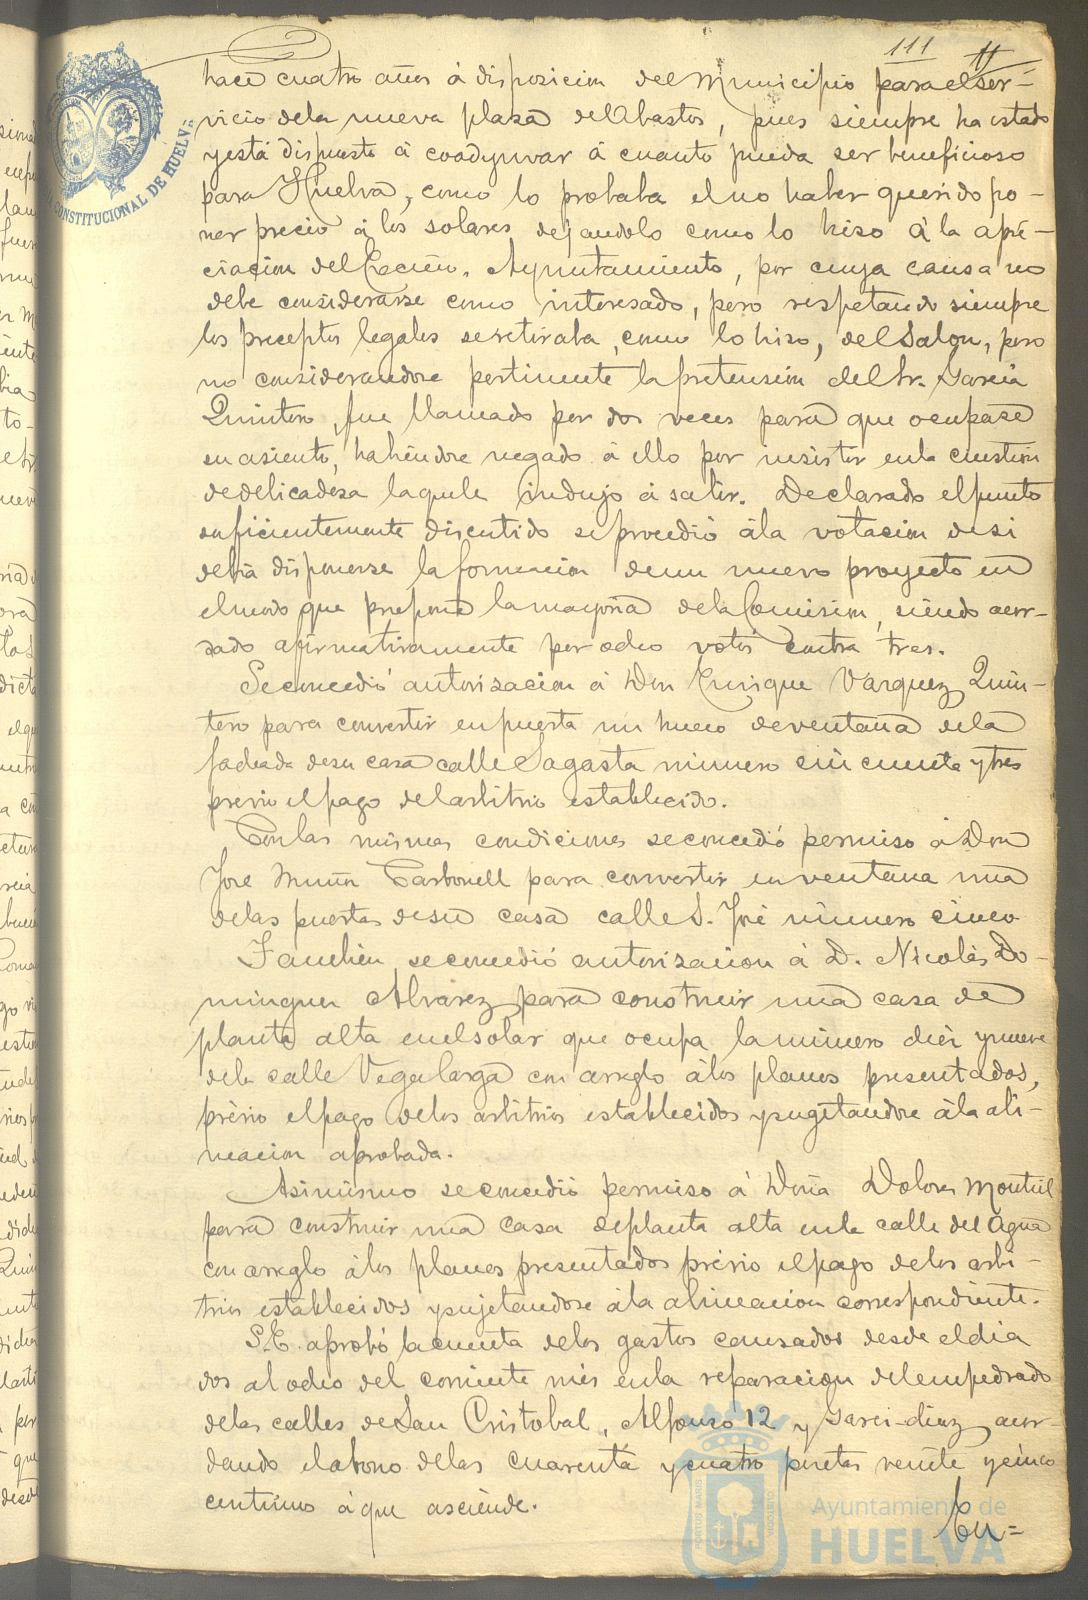 111
hace cuatro años á disposicion del Municipio para el ser-
vicio de la nueva plaza de Abastos, pues siempre ha estado
y está dispuesto á coadyuvar á cuanto pueda ser beneficioso
para Huelva, como lo probaba el no haber querido po-
ner precio á los solares dejandolo como lo hizo á la apre-
ciacion del Excmo. Ayuntamiento, por cuya causa no
debe considerarse como interesado, pero respetando siempre
los preceptos legales se retiraba, como lo hizo, del Salon, pero
no considerandose pertinente la pretension del Sr. Garcia
Quintero, fue llamado por dos veces para que ocupase
su asiento, habiendose negado á ello por insistir en la cuestion
de delicadeza la que le indujo á salir. Declarado el punto
suficientemente discutido se procedió á la votacion de si
debia disponerse la formacion de un nuevo proyecto en
el modo que propone la mayoria de la Comision, siendo acor-
dado afirmativamente por ocho votos contra tres.
Se concedió autorizacion á Don Enrique Vazquez Quin-
tero para convertir en puerta un hueco de ventana de la
fachada de su casa calle Sagasta número cincuenta y tres
previo el pago del arbitrio establecido.
Con las mismas condiciones se concedió permiso á Don
José Muñoz Carbonell para convertir en ventana una
de las puertas de su casa calle S. José número cinco
Tambien se concedió autorizacion á D. Nicolás Do-
minguez Alvarez para construir una casa de
planta alta en el solar que ocupa la número diez y nueve
de la calle Vega larga con arreglo á los planos presentados,
prévio el pago de los arbitrios establecidos y sugetandose á la ali-
neacion aprobada.
Asimismo se concedió permiso á Doña Dolores Montiel
para construir una casa de planta alta en la calle del Agua
con arreglo á los planos presentados prévio el pago de los arbi-
trios establecidos y sujetandose á la alineacion correspondiente.
S.E. aprobó la cuenta de los gastos causados desde el dia
dos al ocho del corriente mes en la reparacion del empedrado
de las calles de San Cristobal, Alfonso 12 y Garci-diaz acor-
dando el abono de las cuarenta y cuatro pesetas veinte y cinco
centimos á que asciende.
En=
CONSTITUCIONAL DE HUELVA
PORTUS MARIS
CUSTODIA
Ayuntamiento de
HUELVA